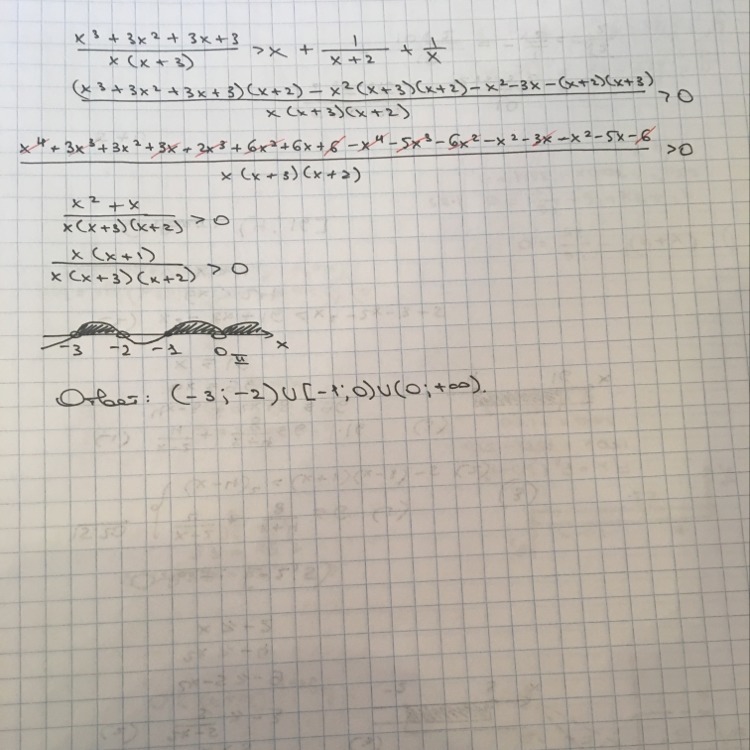 x³ + 3x² + 3x + 3 / x(x+3) > x + 1/(x+2) + 1/x
(x³ + 3x² + 3x + 3)(x+2) - x²(x+3)(x+2) - x² - 3x - (x+2)(x+3) / x(x+3)(x+2) > 0
x⁴ + 3x³ + 3x² + 3x + 2x³ + 6x² + 6x + 6 - x⁴ - 5x³ - 6x² - x² - 3x - x² - 5x - 6 / x(x+3)(x+2) > 0
x² + x / x(x+3)(x+2) > 0
x(x+1) / x(x+3)(x+2) > 0
-3 -2 -1 0 II x
Ответ: (-3; -2)∪[-1; 0)∪(0; +∞).